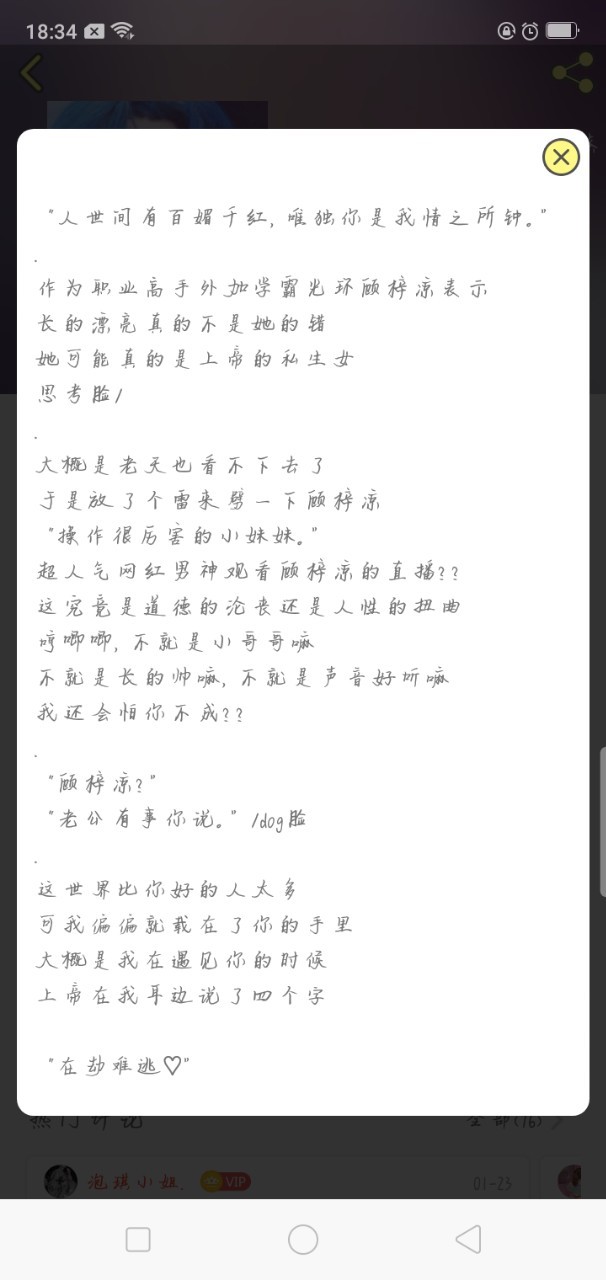 18:34
"人世间有百媚千红, 唯独你是我情之所钟。"
.
作为职业高手外加学霸光环顾梓凉表示
长的漂亮真的不是她的错
她可能真的是上帝的私生女
思考脸/
.
大概是老天也看不下去了
于是放了个雷来劈一下顾梓凉
"操作很厉害的小妹妹。"
超人气网红男神观看顾梓凉的直播??
这究竟是道德的沦丧还是人性的扭曲
哼唧唧, 不就是小哥哥嘛
不就是长的帅嘛, 不就是声音好听嘛
我还会怕你不成??
.
"顾梓凉?"
"老公有事你说。" /dog脸
.
这世界比你好的人太多
可我偏偏就栽在了你的手里
大概是我在遇见你的时候
上帝在我耳边说了四个字
"在劫难逃♡"
热门评论 全部(16)
泡琪小姐. VIP 01-23